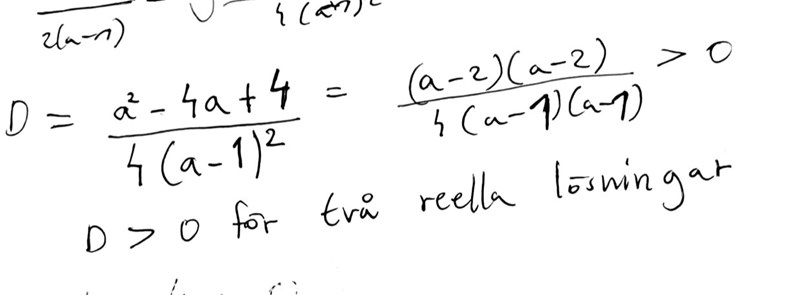 2(a-1) 4(a-1)²
D = a² - 4a + 4 / 4(a-1)² = (a-2)(a-2) / 4(a-1)(a-1) > 0
D > 0 för två reella lösningar